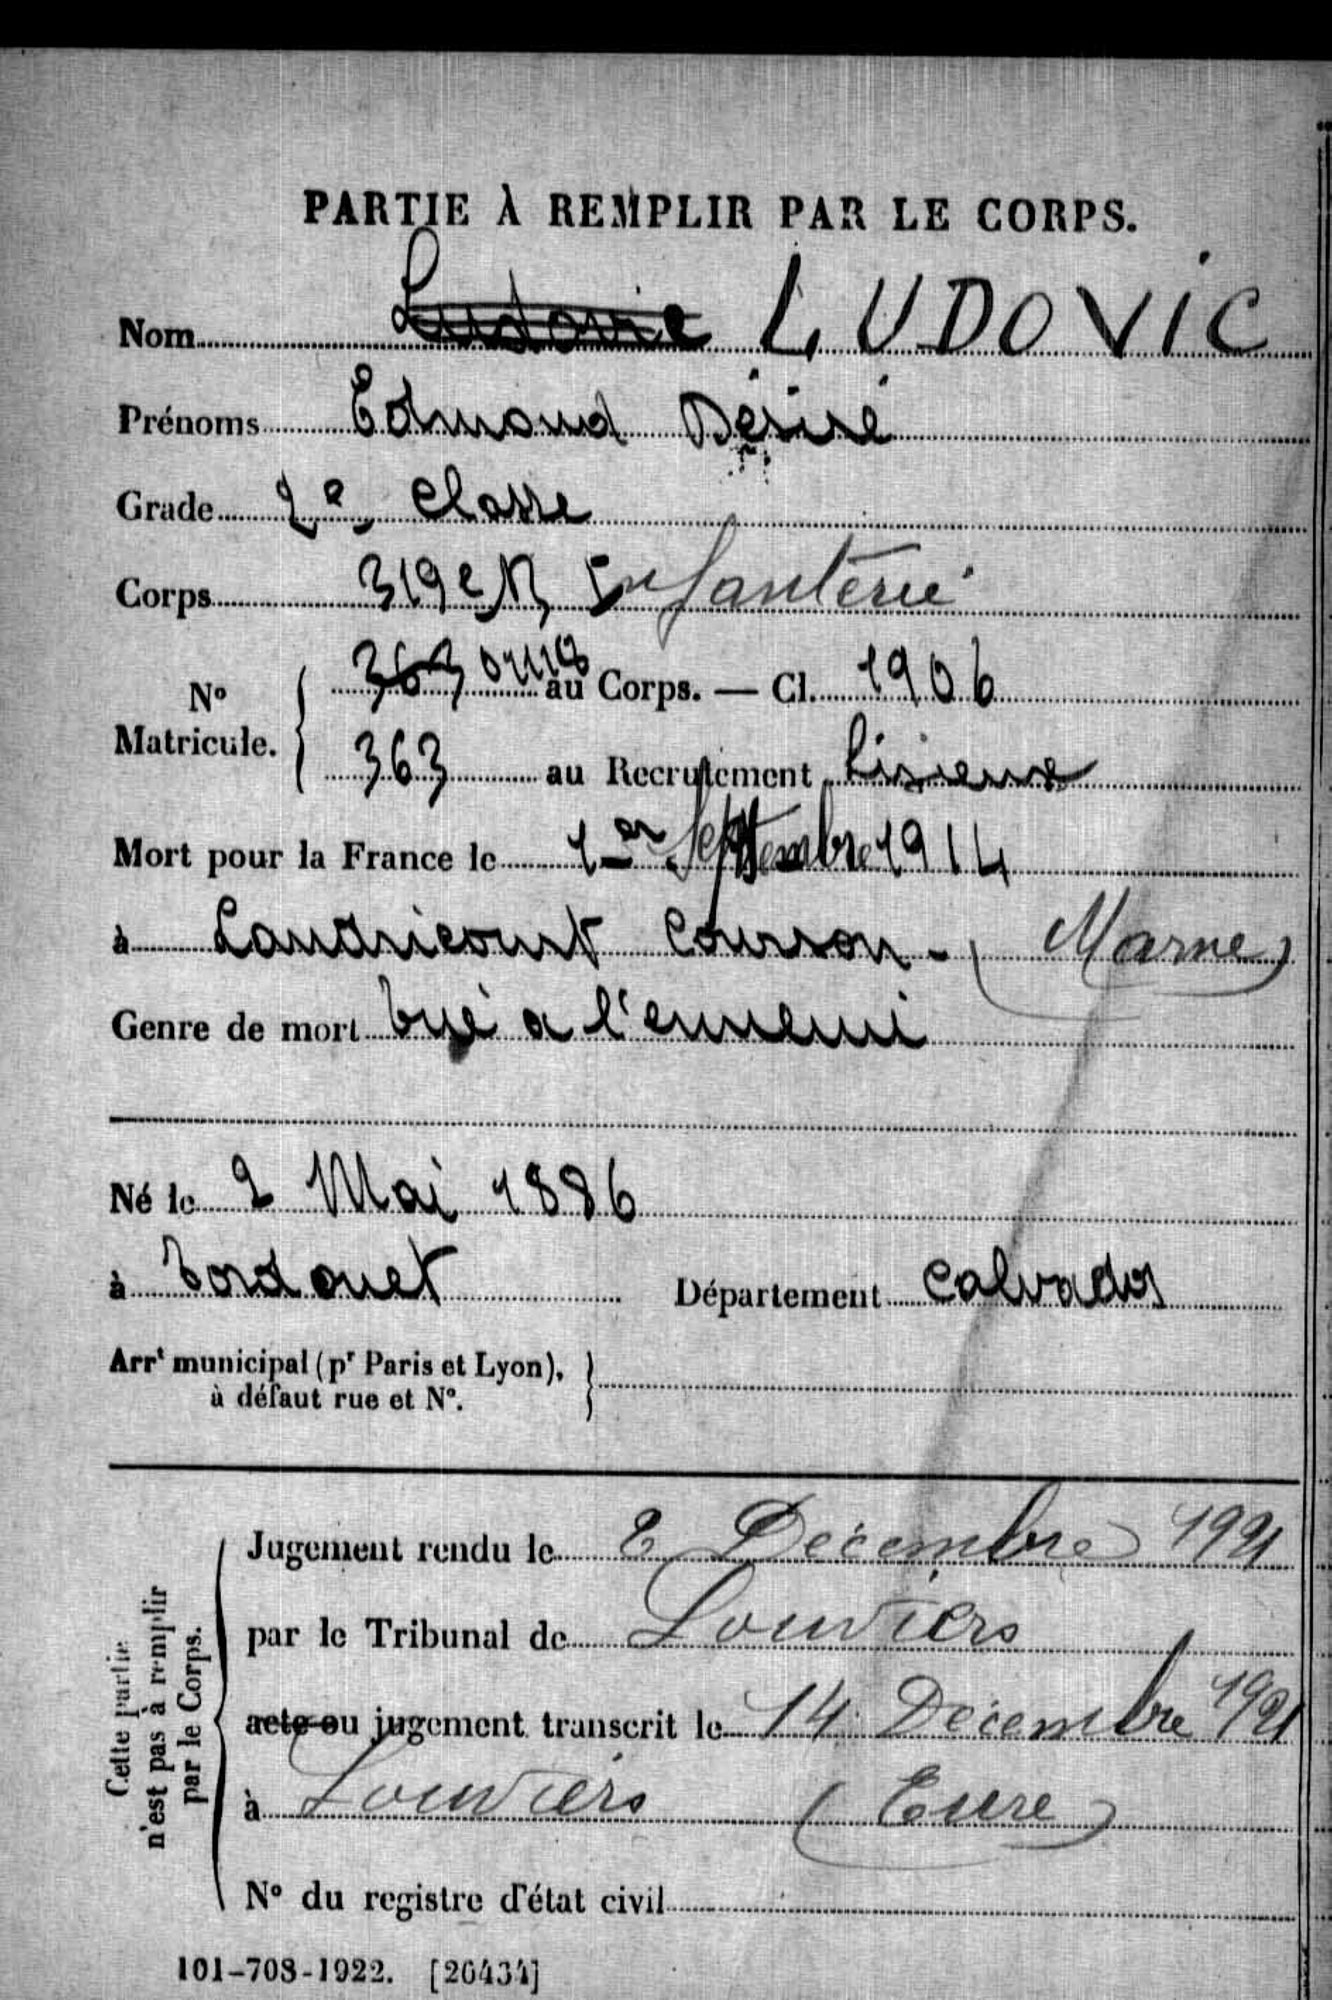 PARTIE À REMPLIR PAR LE CORPS.
Nom Ludovic LUDOVIC
Prénoms Edmond Désiré
Grade 2e Classe
Corps 319e R Infanterie
No Matricule. 363 01118 au Corps. — Cl. 1906
363 au Recrutement Lisieux
Mort pour la France le 1er Septembre 1914
à Landricourt Courson - (Marne)
Genre de mort tué a l'ennemi
Né le 2 Mai 1886
à Tordouet Département Calvados
Arrt municipal (pr Paris et Lyon),
à défaut rue et No.
Cette partie n'est pas à remplir par le Corps.
Jugement rendu le 2 Décembre 1921
par le Tribunal de Louviers
acte ou jugement transcrit le 14 Décembre 1921
à Louviers (Eure)
No du registre d'état civil
101-708-1922. [26434]